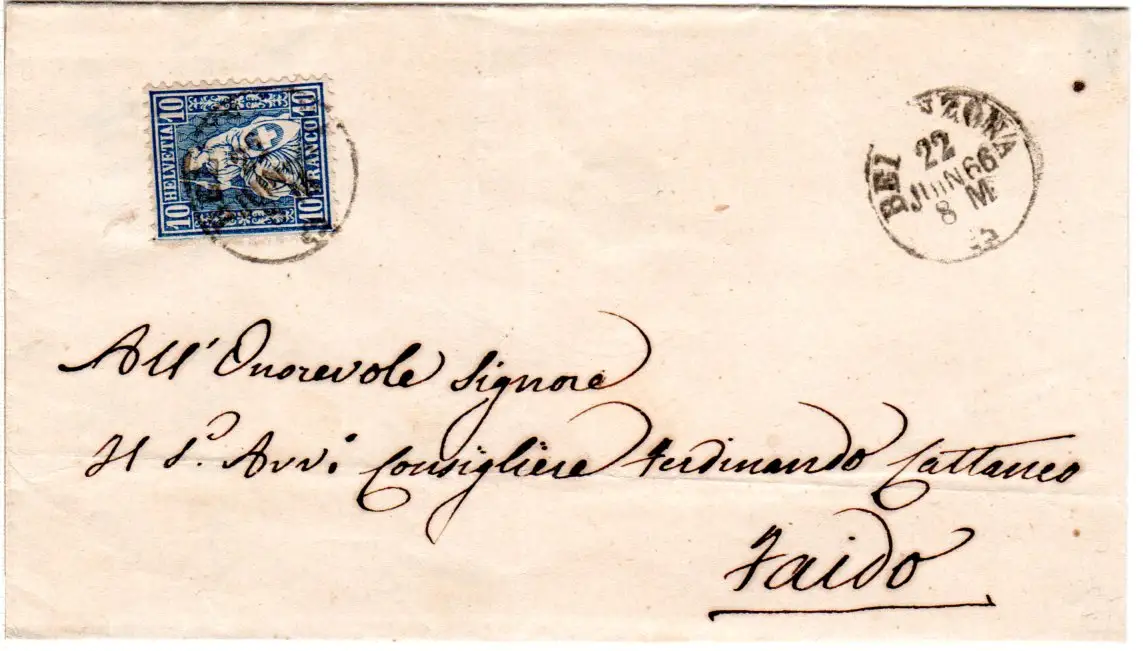 10 HELVETIA 10
10 FRANCO 10
BEL
BEL NZONA
22
JUIN 66
8 M
All' Onorevole Signore
Il S.r Avv.o Consigliere Ferdinando Cattaneo
Faido